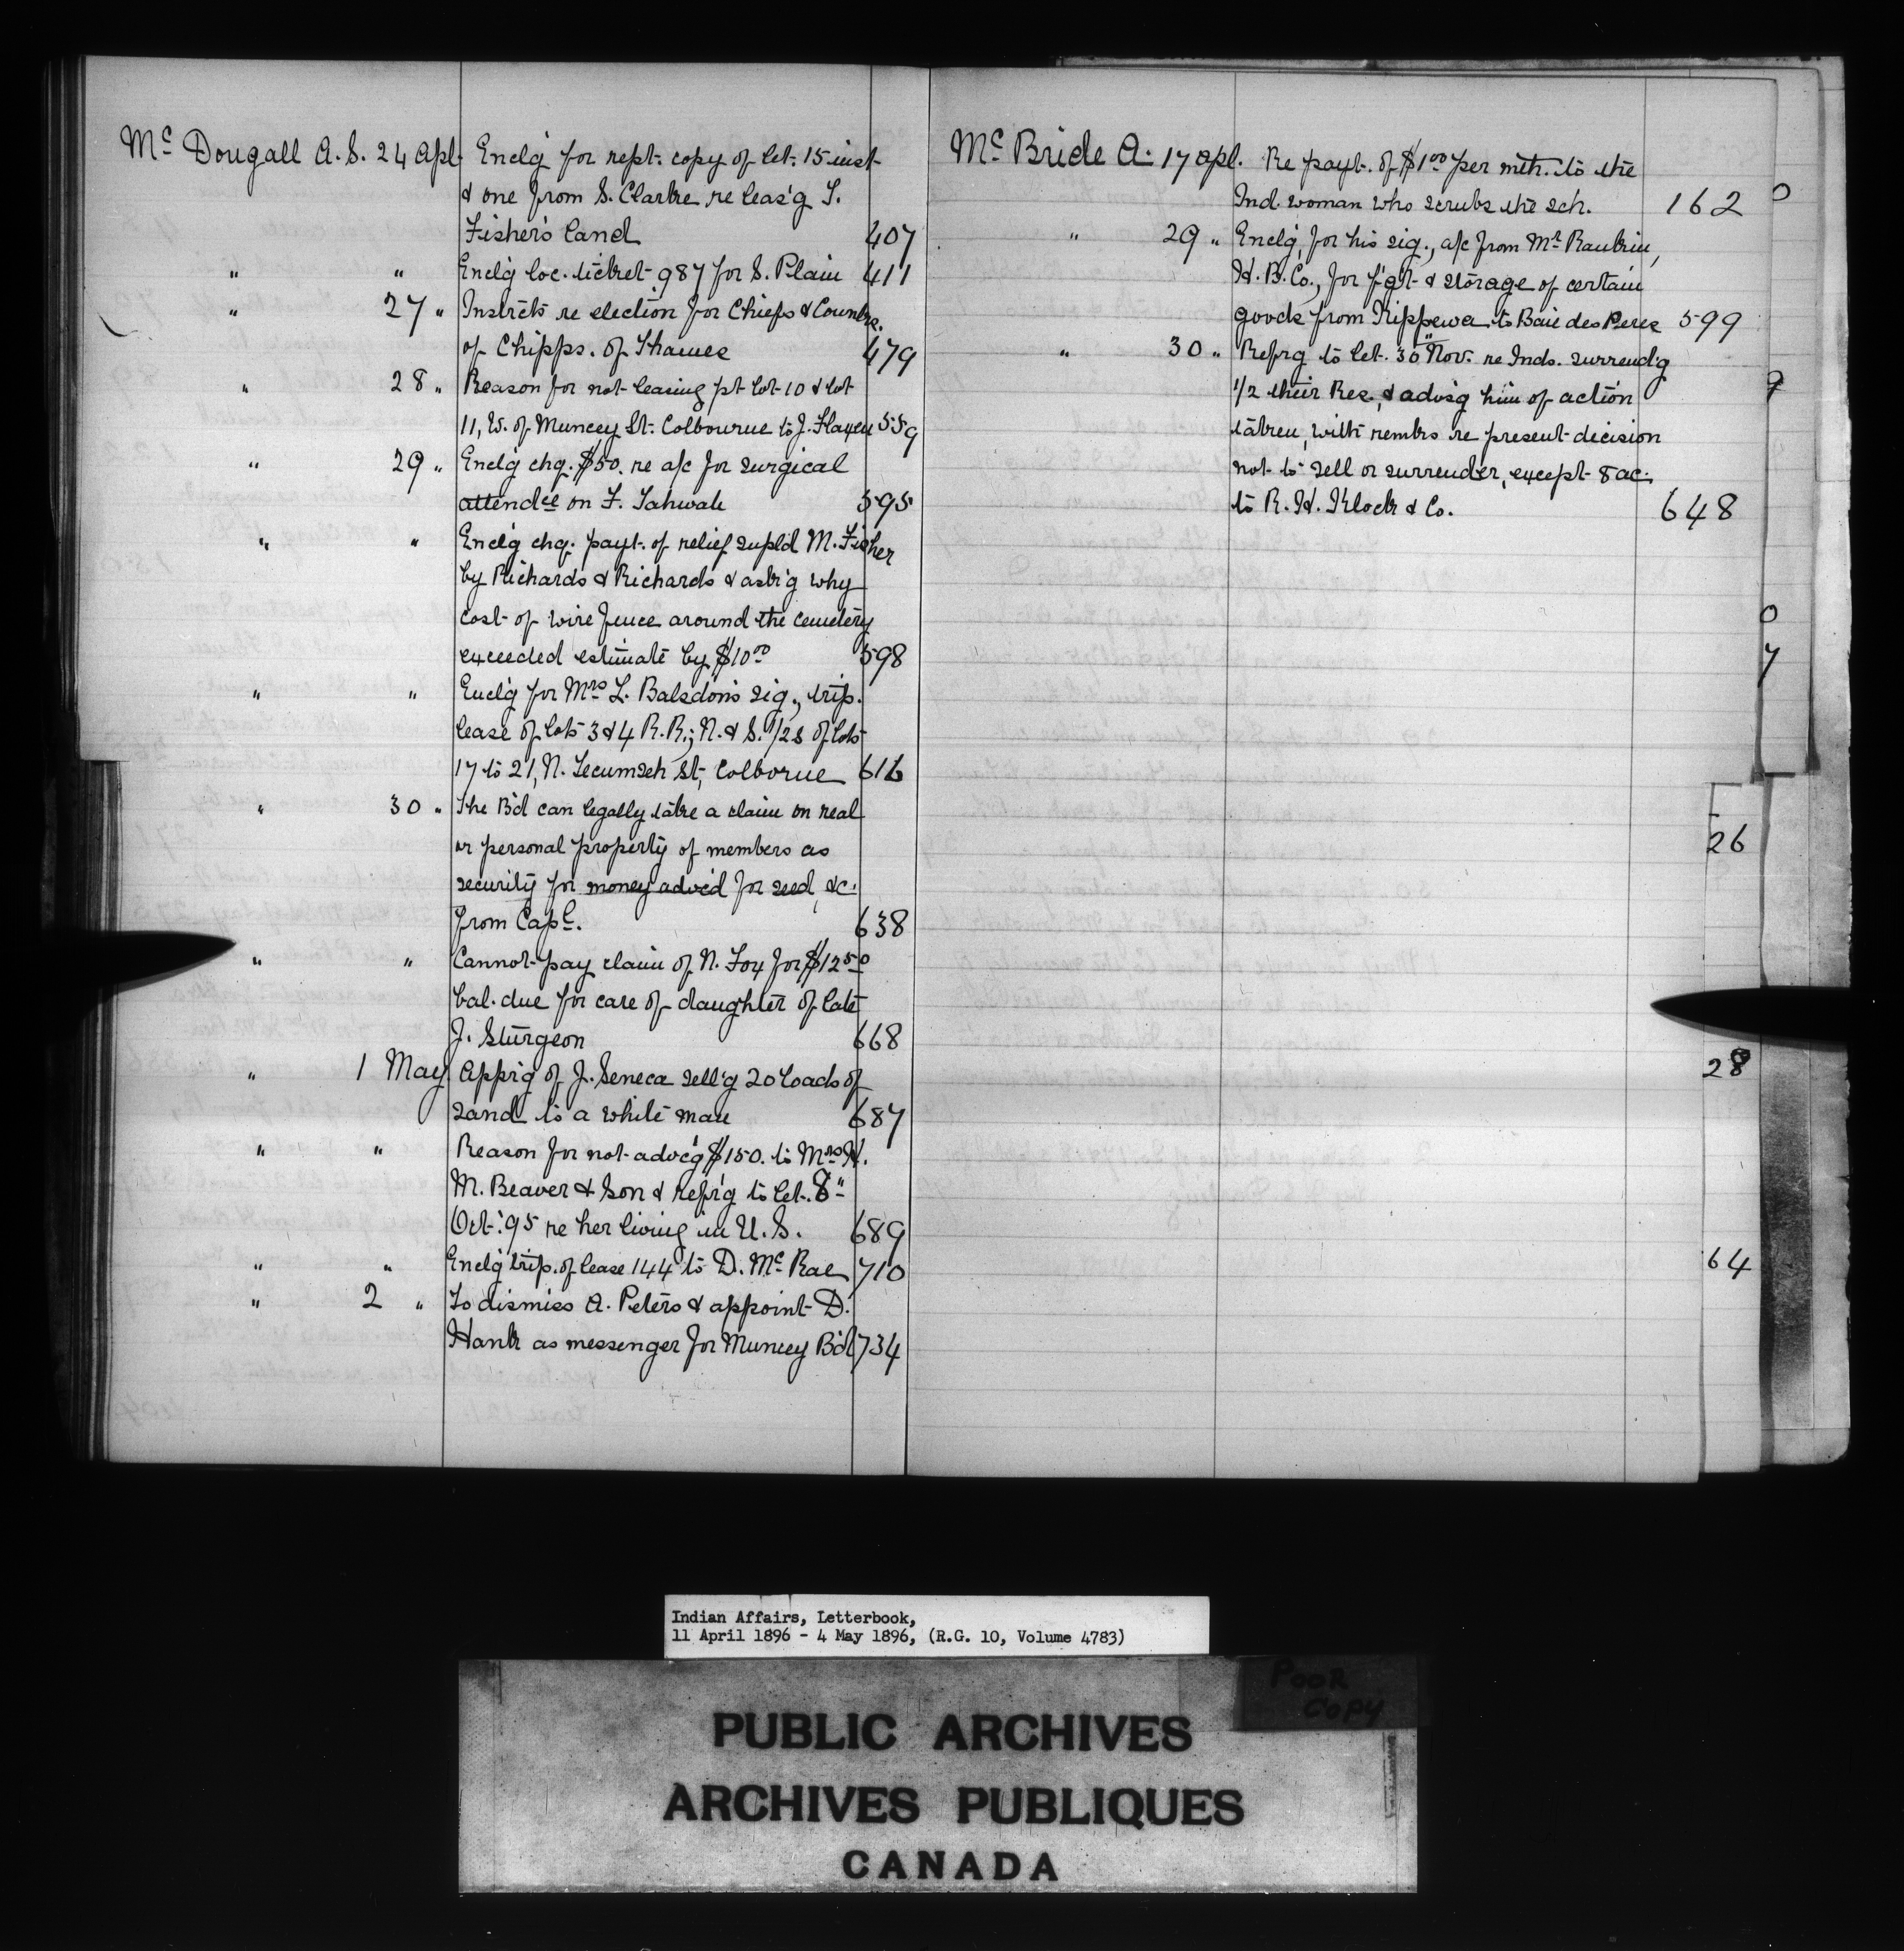 Mc Dougall A. S. 24 Apl. Enclg for rept. copy of let. 15 inst
& one from S. Clarke re leas'g T.
Fisher's land 407
" " Encl'g loc. ticket 987 for S. Plain 411
" 27 " Instrcts re election for Chiefs & Counlrs.
of Chipps. of Thames 479
" 28 " Reason for not leasing pt lot 10 & lot
11, W. of Muncey St. Colbourne to J. 559
" 29 " Encl'g chq. $50. re a/c for surgical
attendce on F. Tahwah 595
" " Encl'g chq. payt. of relief supld M. Fisher
by Richards & Richards & ask'g why
cost of wire fence around the cemetery
exceeded estimate by $10.00 598
" " Encl'g for Mrs L. Balsdon's sig., trip.
lease of lots 3 & 4 R.R.; N. & S. 1/2s of lots
17 to 21, N. Tecumseh St, Colborne 616
" 30 " The B'd can legally take a claim on real
or personal property of members as
security for money advc'd for seed, &c.
from Capl. 638
" " Cannot pay claim of N. Fox for $12.50
bal. due for care of daughter of late
J. Sturgeon 668
" 1 May Appr'g of J. Seneca sell'g 20 loads of
sand to a white man 687
" " Reason for not advc'g $150. to Mrs H.
M. Beaver & Son & refr'g to let. 8"
Oct. '95 re her living in U. S. 689
" " Encl'g trip. of lease 144 to D. McRae 710
" 2 " To dismiss A. Peters & appoint D.
Hank as messenger for Muncey B'd 734
Mc Bride A. 17 Apl. Re payt. of $1.00 per mth. to the
Ind. woman who scrubs the sch. 162
" 29 " Encl'g, for his sig., a/c from Mr Rankin,
H. B. Co., for f'gt & storage of certain
goods from Kippewa to Baie des Peres 599
" 30 " Refrg to let. 30" Nov. re Inds. surrend'g
1/2 their Res. & advis'g him of action
taken, with remks re present decision
not to sell or surrender, except 8 ac.
to R. H. Klock & Co. 648
0
9
0
7
26
28
64
Indian Affairs, Letterbook,
11 April 1896 - 4 May 1896, (R.G. 10, Volume 4783)
POOR
COPY
PUBLIC ARCHIVES
ARCHIVES PUBLIQUES
CANADA